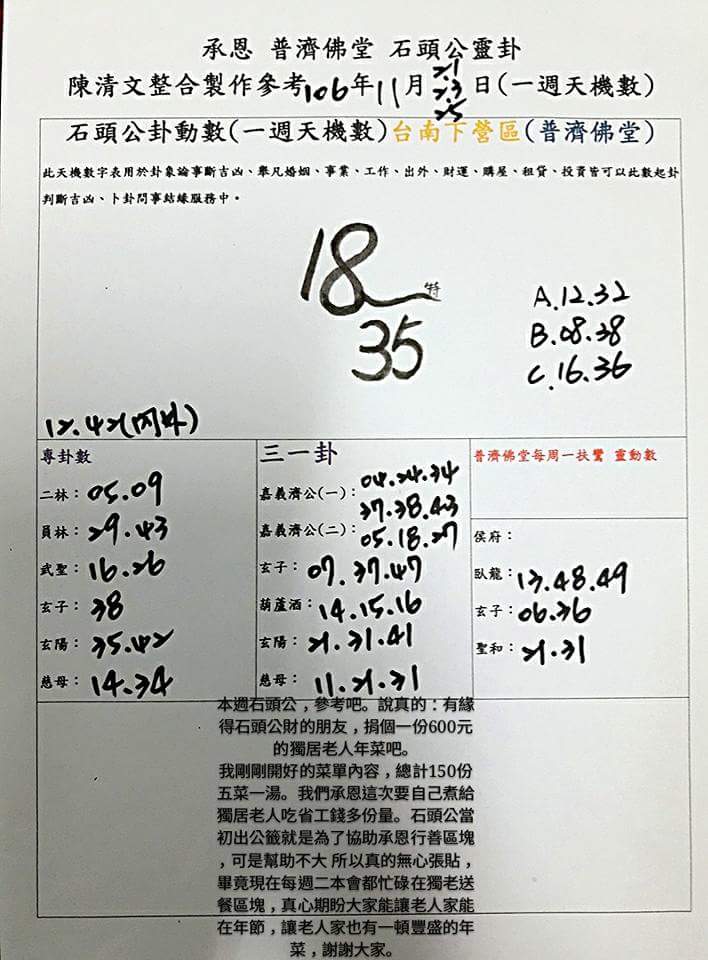 承恩 普濟佛堂 石頭公靈卦
陳清文整合製作參考106年11月21.23.25日(一週天機數)
石頭公卦動數(一週天機數)台南下營區(普濟佛堂)
此天機數字表用於卦象論事斷吉凶、舉凡婚姻、事業、工作、出外、財運、購屋、租貸、投資皆可以此數起卦
判斷吉凶、卜卦問事結緣服務中。
18特
35
A.12.32
B.08.38
C.16.36
12.42(內外)
專卦數
二林：05.09
員林：29.43
武聖：16.26
玄子：38
玄陽：35.42
慈母：14.34
三一卦
嘉義濟公(一)：04.24.34
37.38.43
嘉義濟公(二)：05.18.27
玄子：07.37.47
葫蘆酒：14.15.16
玄陽：21.31.41
慈母：11.21.31
普濟佛堂每周一扶鸞 靈動數
侯府：
臥龍：13.48.49
玄子：06.36
聖和：21.31
本週石頭公，參考吧。說真的：有緣
得石頭公財的朋友，捐個一份600元
的獨居老人年菜吧。
我剛剛開好的菜單內容，總計150份
五菜一湯。我們承恩這次要自己煮給
獨居老人吃省工錢多份量。石頭公當
初出公籤就是為了協助承恩行善區塊
，可是幫助不大 所以真的無心張貼，
畢竟現在每週二本會都忙碌在獨老送
餐區塊，真心期盼大家能讓老人家能
在年節，讓老人家也有一頓豐盛的年
菜，謝謝大家。